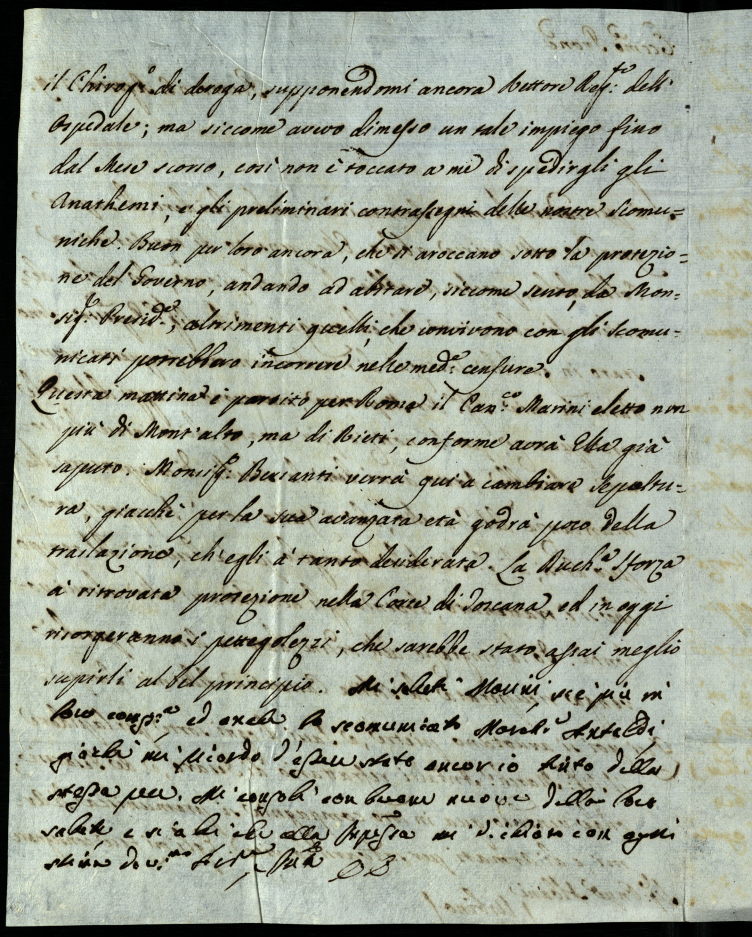 il Chirog.º di deroga, supponendomi ancora Rettore Reg.te dell'
Ospedale; ma siccome avevo dimesso un tale impiego fino
dal Mese scorso, così non è toccato a me di spedirgli gli
Anathemi, e gli preliminari contrassegni delle nostre scomu=
niche. Buon per loro ancora, che si aroccano sotto la protezio=
ne del Governo, andando ad abitare, siccome sento, da Mon=
sig.r Presid.e, altrimenti quelli, che convivono con gli scomu=
nicati potrebbero incorrere nelle med.e censure.
Questa mattina è partito per Roma il Can.co Marini eletto non
più di Mont'alto, ma di Rieti, conforme avrà Ella già
saputo. Monsig.r verrà qui a cambiare sepoltu=
ra, giacchè per la sua avanzata età godrà poco della
traslazione, ch'egli à tanto desiderata. La Duch.a Sforza
à ritrovata protezione nella Corte di Toscana, ed in oggi
risorgeranno i pettegolezzi, che sarebbe stato assai meglio
sopirli al bel principio. Mi saluti se più in
loro comp.a ed anche lo scomunicato Antaldi
giachè mi ricordo d'essere stato ancor io tinto della
stessa pece. Mi consoli con buone nuove della loro
salute e si alla mi dichiaro con ogni
stima dev.mo